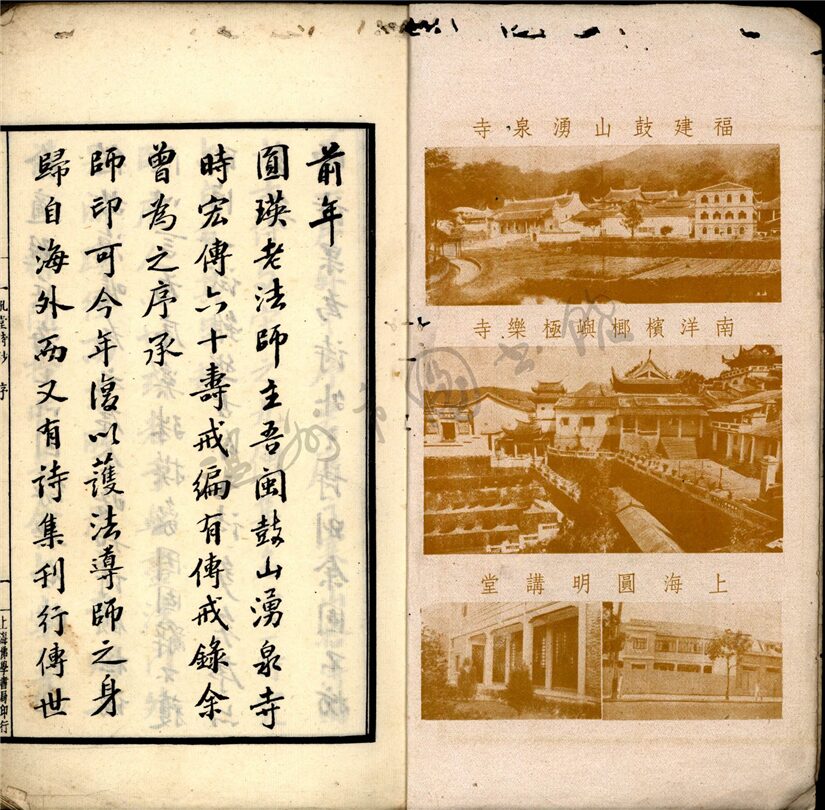 福建鼓山湧泉寺
南洋檳榔嶼極樂寺
上海圓明講堂
前年
圓瑛老法師主吾閩鼓山湧泉寺
時宏傳六十壽戒編有傳戒錄余
曾為之序承
師印可今年復以護法導師之身
歸自海外而又有詩集刊行傳世
一吼堂詩鈔 序
一
上海佛學書局印行